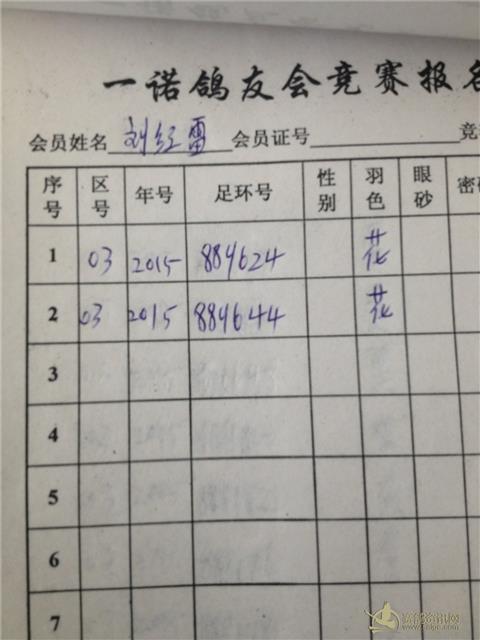 一诺鸽友会竞赛报名
会员姓名 刘红雷 会员证号 竞
序号 区号 年号 足环号 性别 羽色 眼砂 密码
1 03 2015 884624 花
2 03 2015 884644 花
3
4
5
6
7